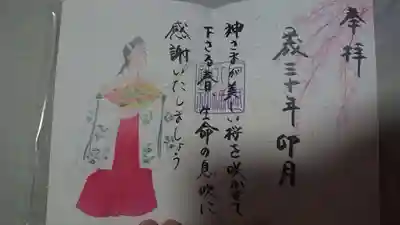 奉拝
平成三十年卯月
神さまが美しい桜を咲かせて
下さる春、生命の息吹に
感謝いたしましょう